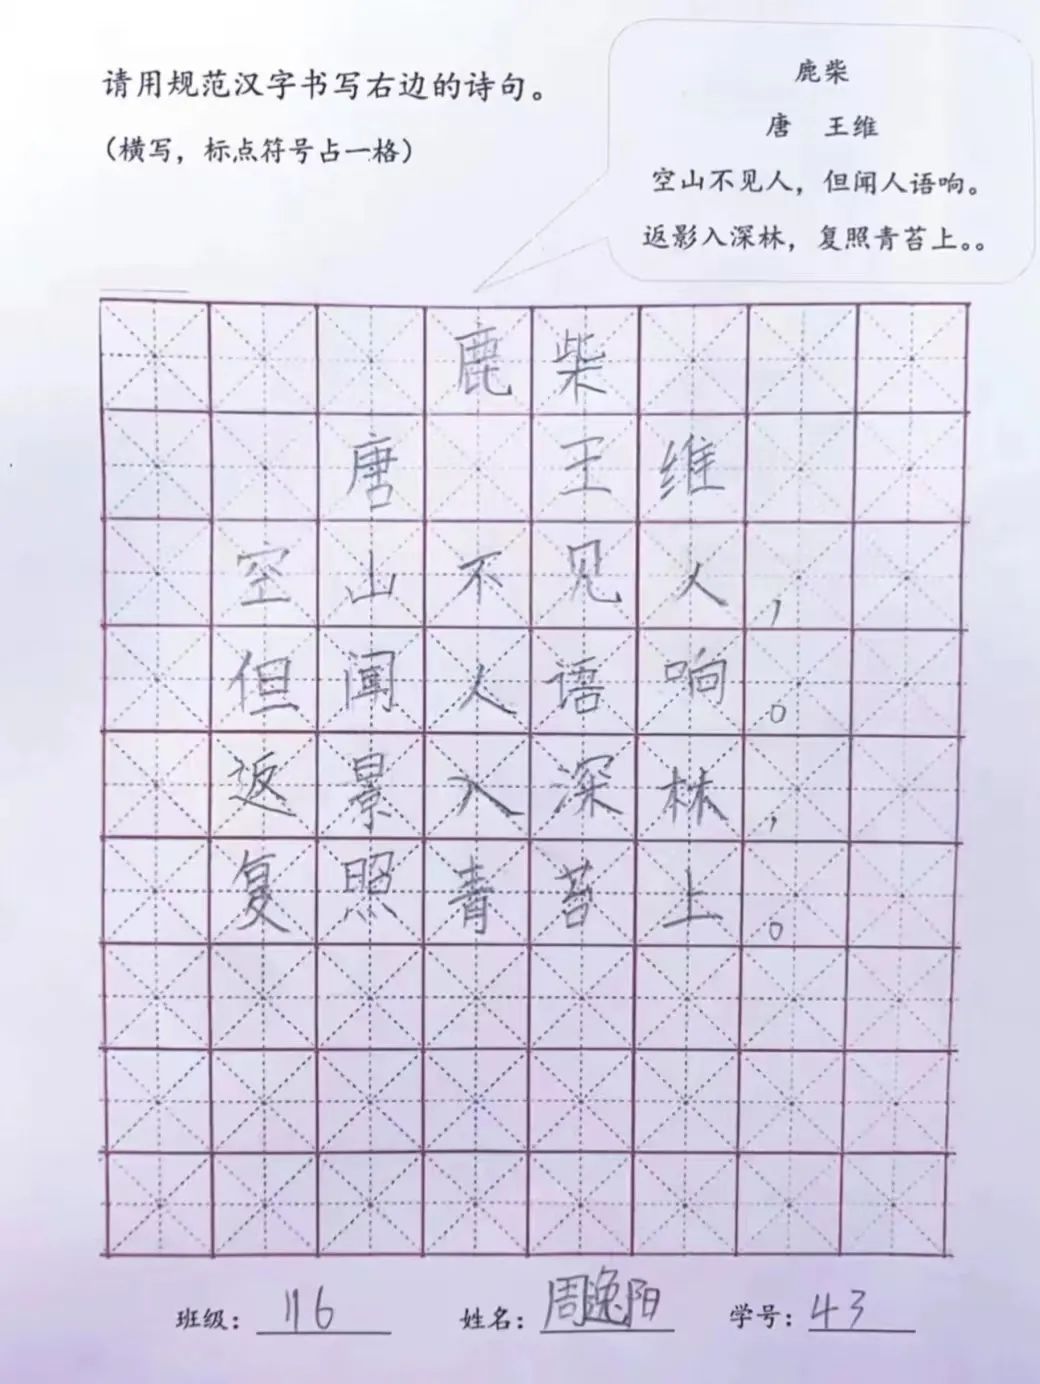 请用规范汉字书写右边的诗句。
（横写，标点符号占一格）
鹿柴
唐 王维
空山不见人，但闻人语响。
返影入深林，复照青苔上。。
鹿柴
唐 王维
空山不见人，
但闻人语响。
返景入深林，
复照青苔上。
班级： 116 姓名： 周逸阳 学号： 43